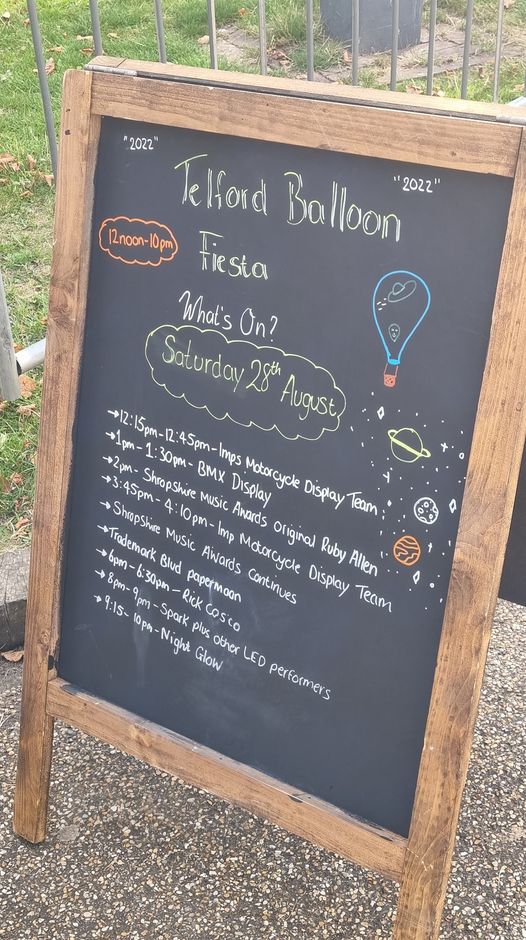 "2022"
"2022"
Telford Balloon
Fiesta
12noon-10pm
What's On?
Saturday 28th August
→12:15pm-12:45pm-Imps Motorcycle Display Team
→1pm-1:30pm- BMX Display
→2pm- Shropshire Music Awards Original Ruby Allen
→3:45pm-4:10pm-Imp Motorcycle Display Team
→Shropshire Music Awards continues
→Trademark Blud papermoon
→6pm-6:30pm-Rick Cosco
→8pm-9pm-Spark plus other LED performers
→9:15-10pm-Night Glow